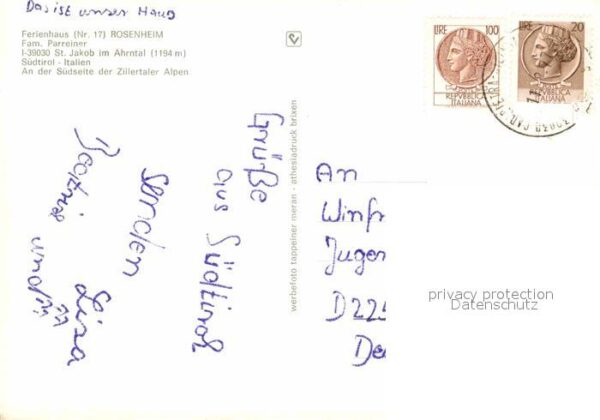 Das ist unser Haus
Ferienhaus (Nr. 17) ROSENHEIM
Fam. Parreiner
I-39030 St. Jakob im Ahrntal (1194 m)
Südtirol - Italien
An der Südseite der Zillertaler Alpen
LIRE 100
POSTE
REPUBBLICA
ITALIANA
LIRE 20
REPUBBLICA
ITALIANA
39030
werbefoto tappeiner meran - athesiadruck brixen
Grüße
aus Südtirol
senden
und
Lisa
An
Winf
Jugen
D22
De
privacy protection
Datenschutz